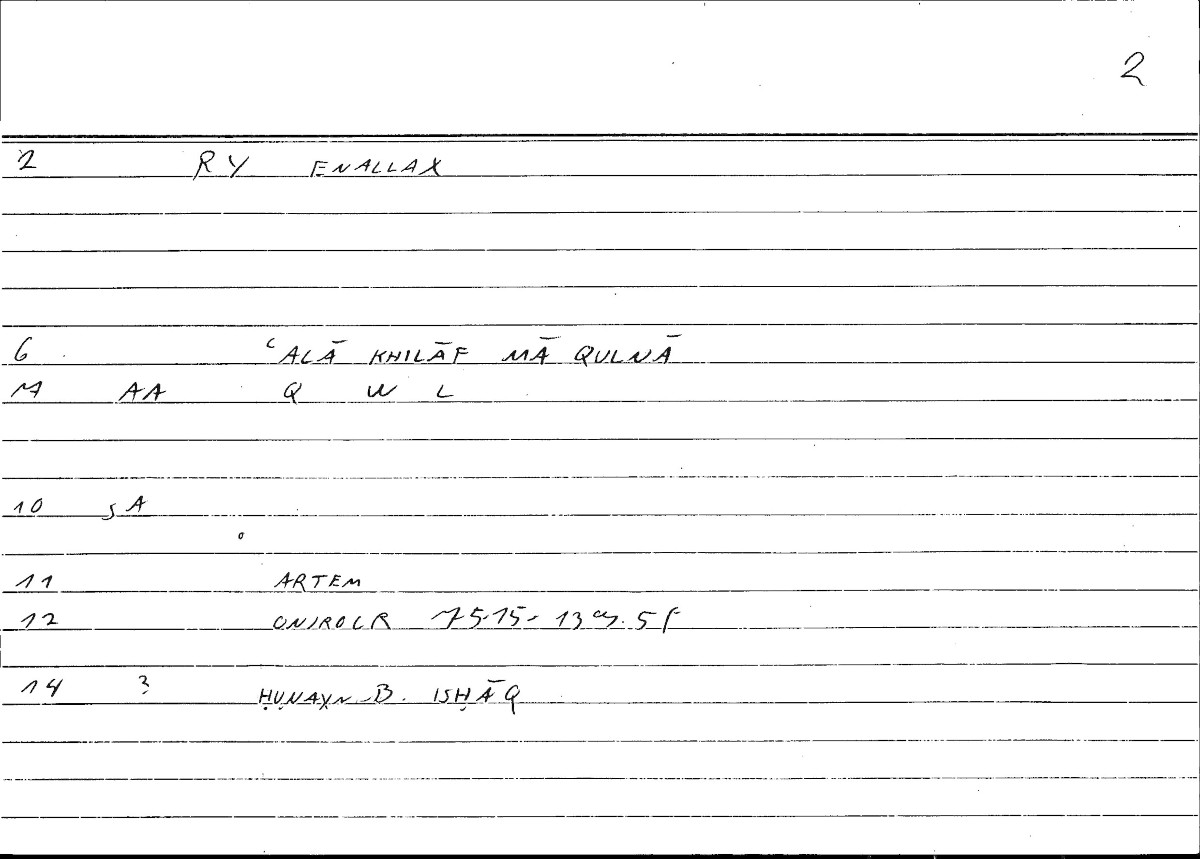 2
2 RY ENALLAX
6 ʿALĀ KHILĀF MĀ QULNĀ
M AA Q W L
10 SA
11 ARTEM
12 ONIROCR
14 ? ḤUNAYN B. ISḤĀQ